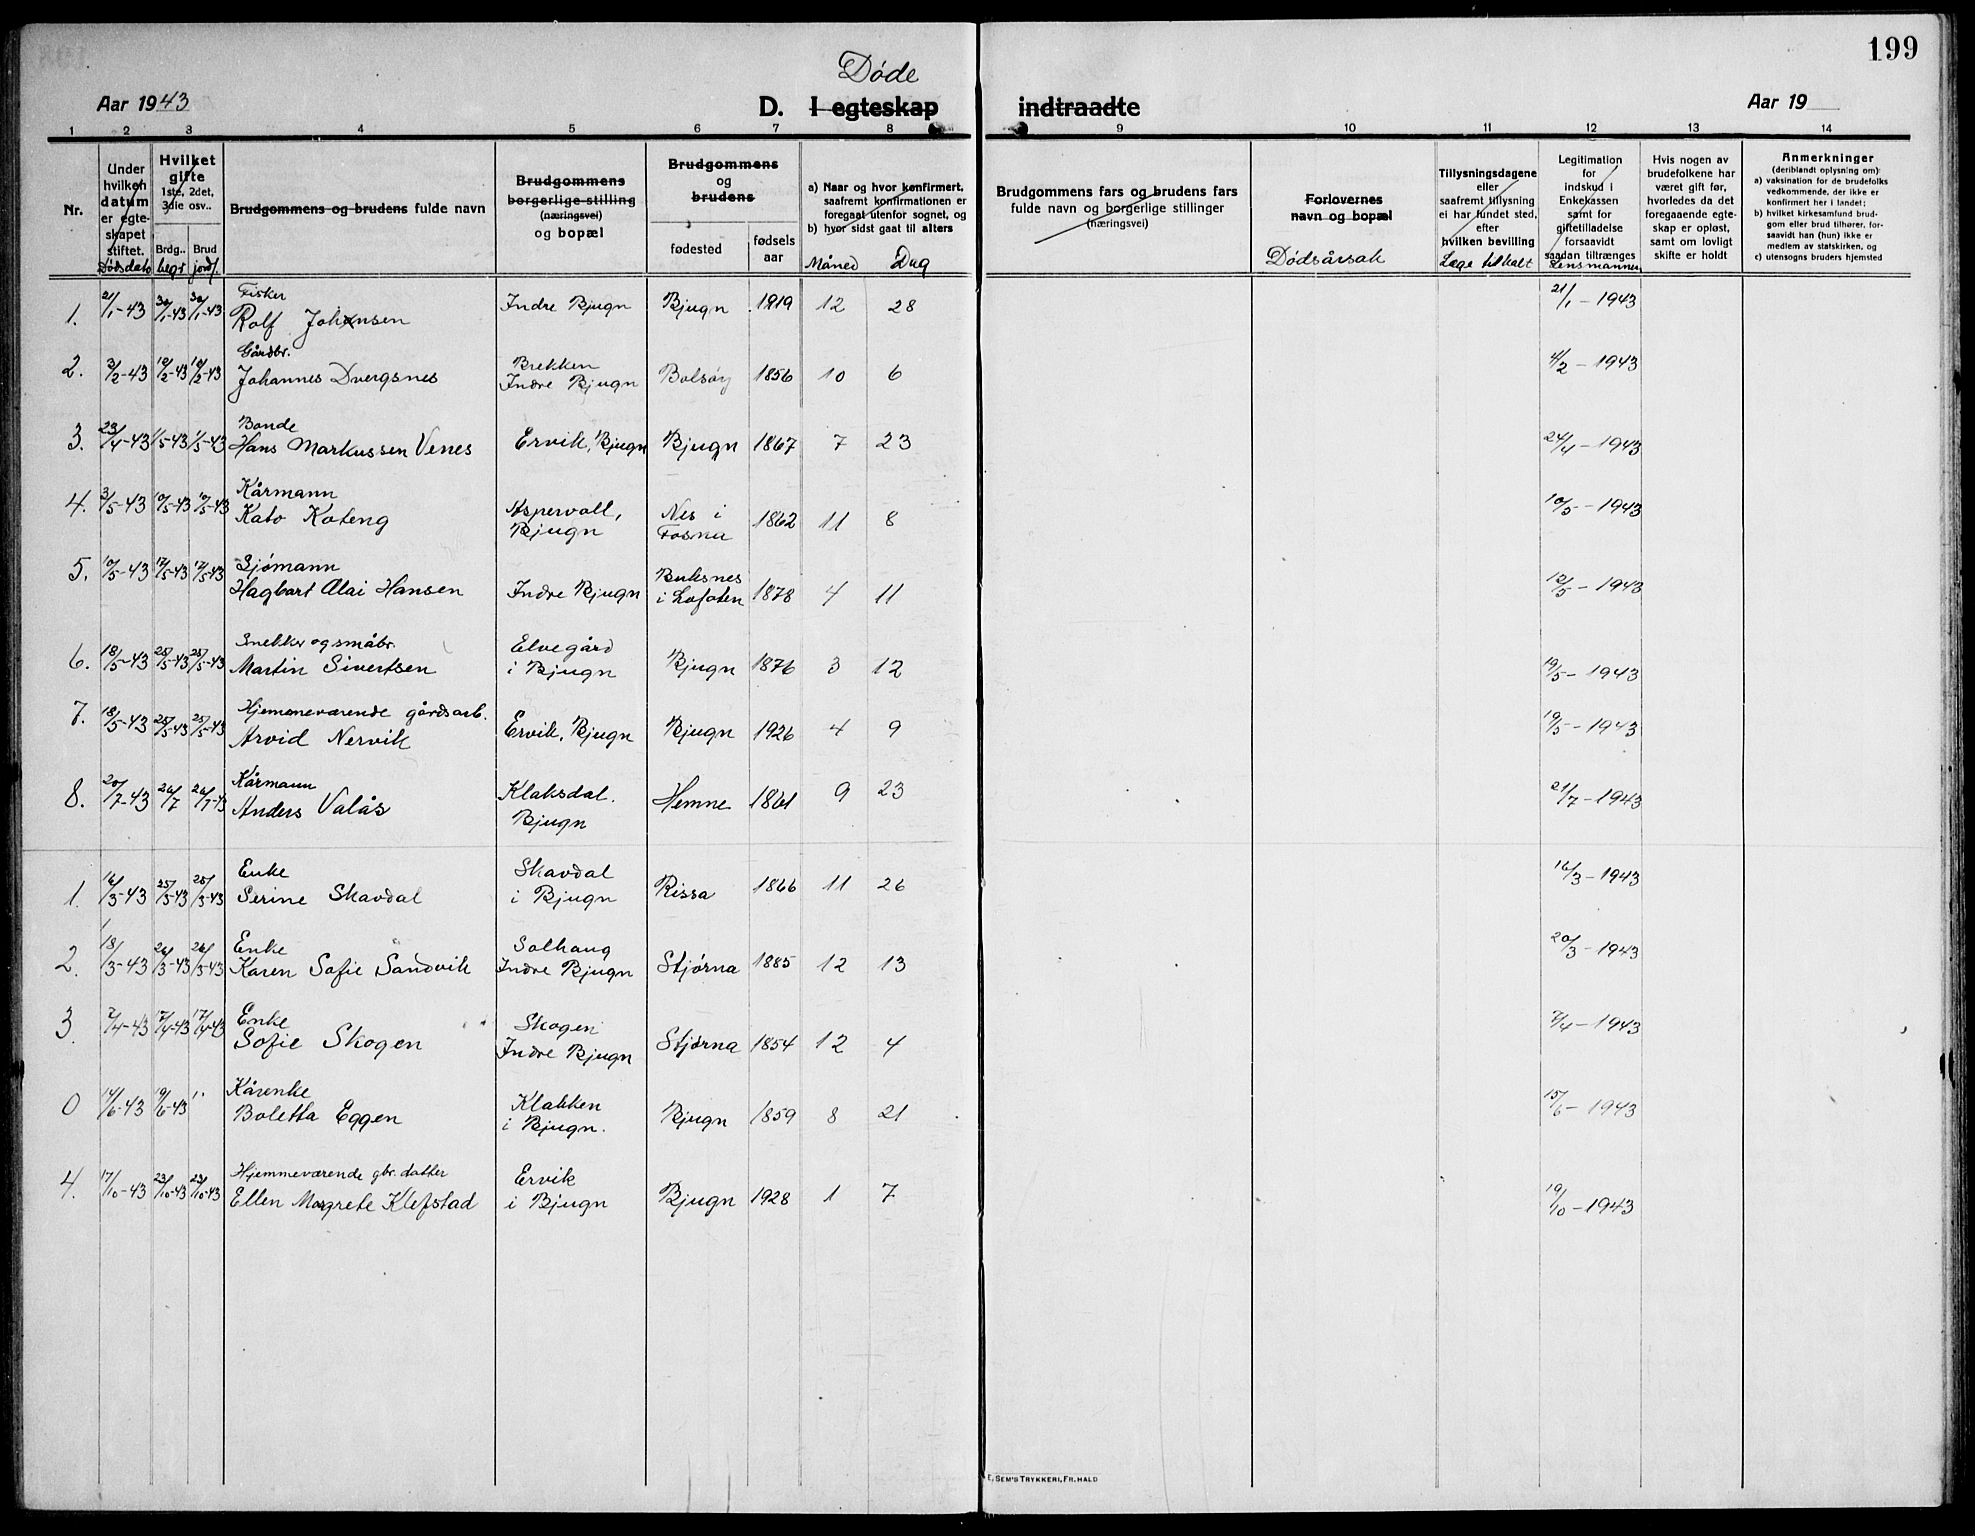 199
Døde
Aar 1943 D. I egteskap indtraadte Aar 19
1 2 3 4 5 6 7 8 9 10 11 12 13 14
Nr.
Under
hvilken
datum
er egte-
skapet
stiftet.
Dødsdato
Hvilket
gifte
1ste, 2det,
3die osv..
Brdg.. Brud
begr jordf.
Brudgommens og brudens fulde navn
Brudgommens
borgerlige stilling
(næringsvei)
og bopæl
Brudgommens
og
brudens
fødested
fødsels
aar
a) Naar og hvor konfirmert,
saafremt konfirmationen er
foregaat utenfor sognet, og
b) hvor sidst gaat til alters
Måned Dag
Brudgommens fars og brudens fars
fulde navn og borgerlige stillinger
(næringsvei)
Forlovernes
navn og bopæl
Dødsårsak
Tillysningsdagene
eller
saafremt tillysning
ei har fundet sted,
efter
hvilken bevilling
Læge tilkalt
Legitimation
for
indskud i
Enkekassen
samt for
giftetilladelse
forsaavidt
saadan tiltrænges
Lensmannen
Hvis nogen av
brudefolkene har
været gift før,
hvorledes da det
foregaaende egte-
skap er opløst,
samt om lovligt
skifte er holdt
Anmerkninger
(deriblandt oplysning om)
a) vaksination for de brudefolks
vedkommende, der ikke er
konfirmert her i landet;
b) hvilket kirkesamfund brud-
gom eller brud tilhører, for-
saavidt han (hun) ikke er
medlem av statskirken, og
c) utensogns bruders hjemsted
Fisker
1. 21/1-43 30/1-43 30/1-43 Rolf Johansen Indre Bjugn Bjugn 1919 12 28 21/1-1943
Gårdbr. Brekken
2. 3/2-43 10/2-43 10/2-43 Johannes Dvergsnes Indre Bjugn Bolsøy 1856 10 6 4/2-1943
Bonde
3. 23/4-43 1/5-43 1/5-43 Hans Markussen Venes Ervik, Bjugn Bjugn 1867 7 23 24/4-1943
Kårmann Aspervoll, Nes i
4. 3/5-43 10/5-43 10/5-43 Kato Koteng Bjugn Fosnu 1862 11 8 10/5-1943
Sjømann Buksnes
5. 10/5-43 17/5-43 17/5-43 Hagbart Olai Hansen Indre Bjugn i Lofoten 1878 4 11 12/5-1943
Snekker og småbr. Elvegård
6. 18/5-43 25/5-43 25/5-43 Martin Sivertsen i Bjugn Bjugn 1876 3 12 19/5-1943
Hjemmeværende gårdsarb.
7. 18/5-43 25/5-43 25/5-43 Arvid Nervik Ervik, Bjugn Bjugn 1926 4 9 19/5-1943
Kårmann Klaksdal.
8. 20/7-43 26/7 26/7-43 Anders Valås Bjugn Hemne 1861 9 23 21/7-1943
Enke Skavdal
1. 16/3-43 25/3-43 25/3-43 Serine Skavdal i Bjugn Rissa 1866 11 26 16/3-1943
Enke Solhaug
2. 18/3-43 26/3-43 26/3-43 Karen Sofie Sandvik Indre Bjugn Stjørna 1885 12 13 20/3-1943
Enke Skogen
3. 7/4-43 17/4-43 17/4-43 Sofie Skogen Indre Bjugn Stjørna 1854 12 4 7/4-1943
Kårenke Klakken
0 14/6-43 19/6-43 " Boletta Eggen i Bjugn. Bjugn 1859 8 21 15/6-1943
Hjemmeværende gbr. datter Ervik
4. 17/10-43 23/10-43 23/10-43 Ellen Margrete Klefstad i Bjugn Bjugn 1928 1 7 19/10-1943
E. SEM'S TRYKKERI, FR.HALD